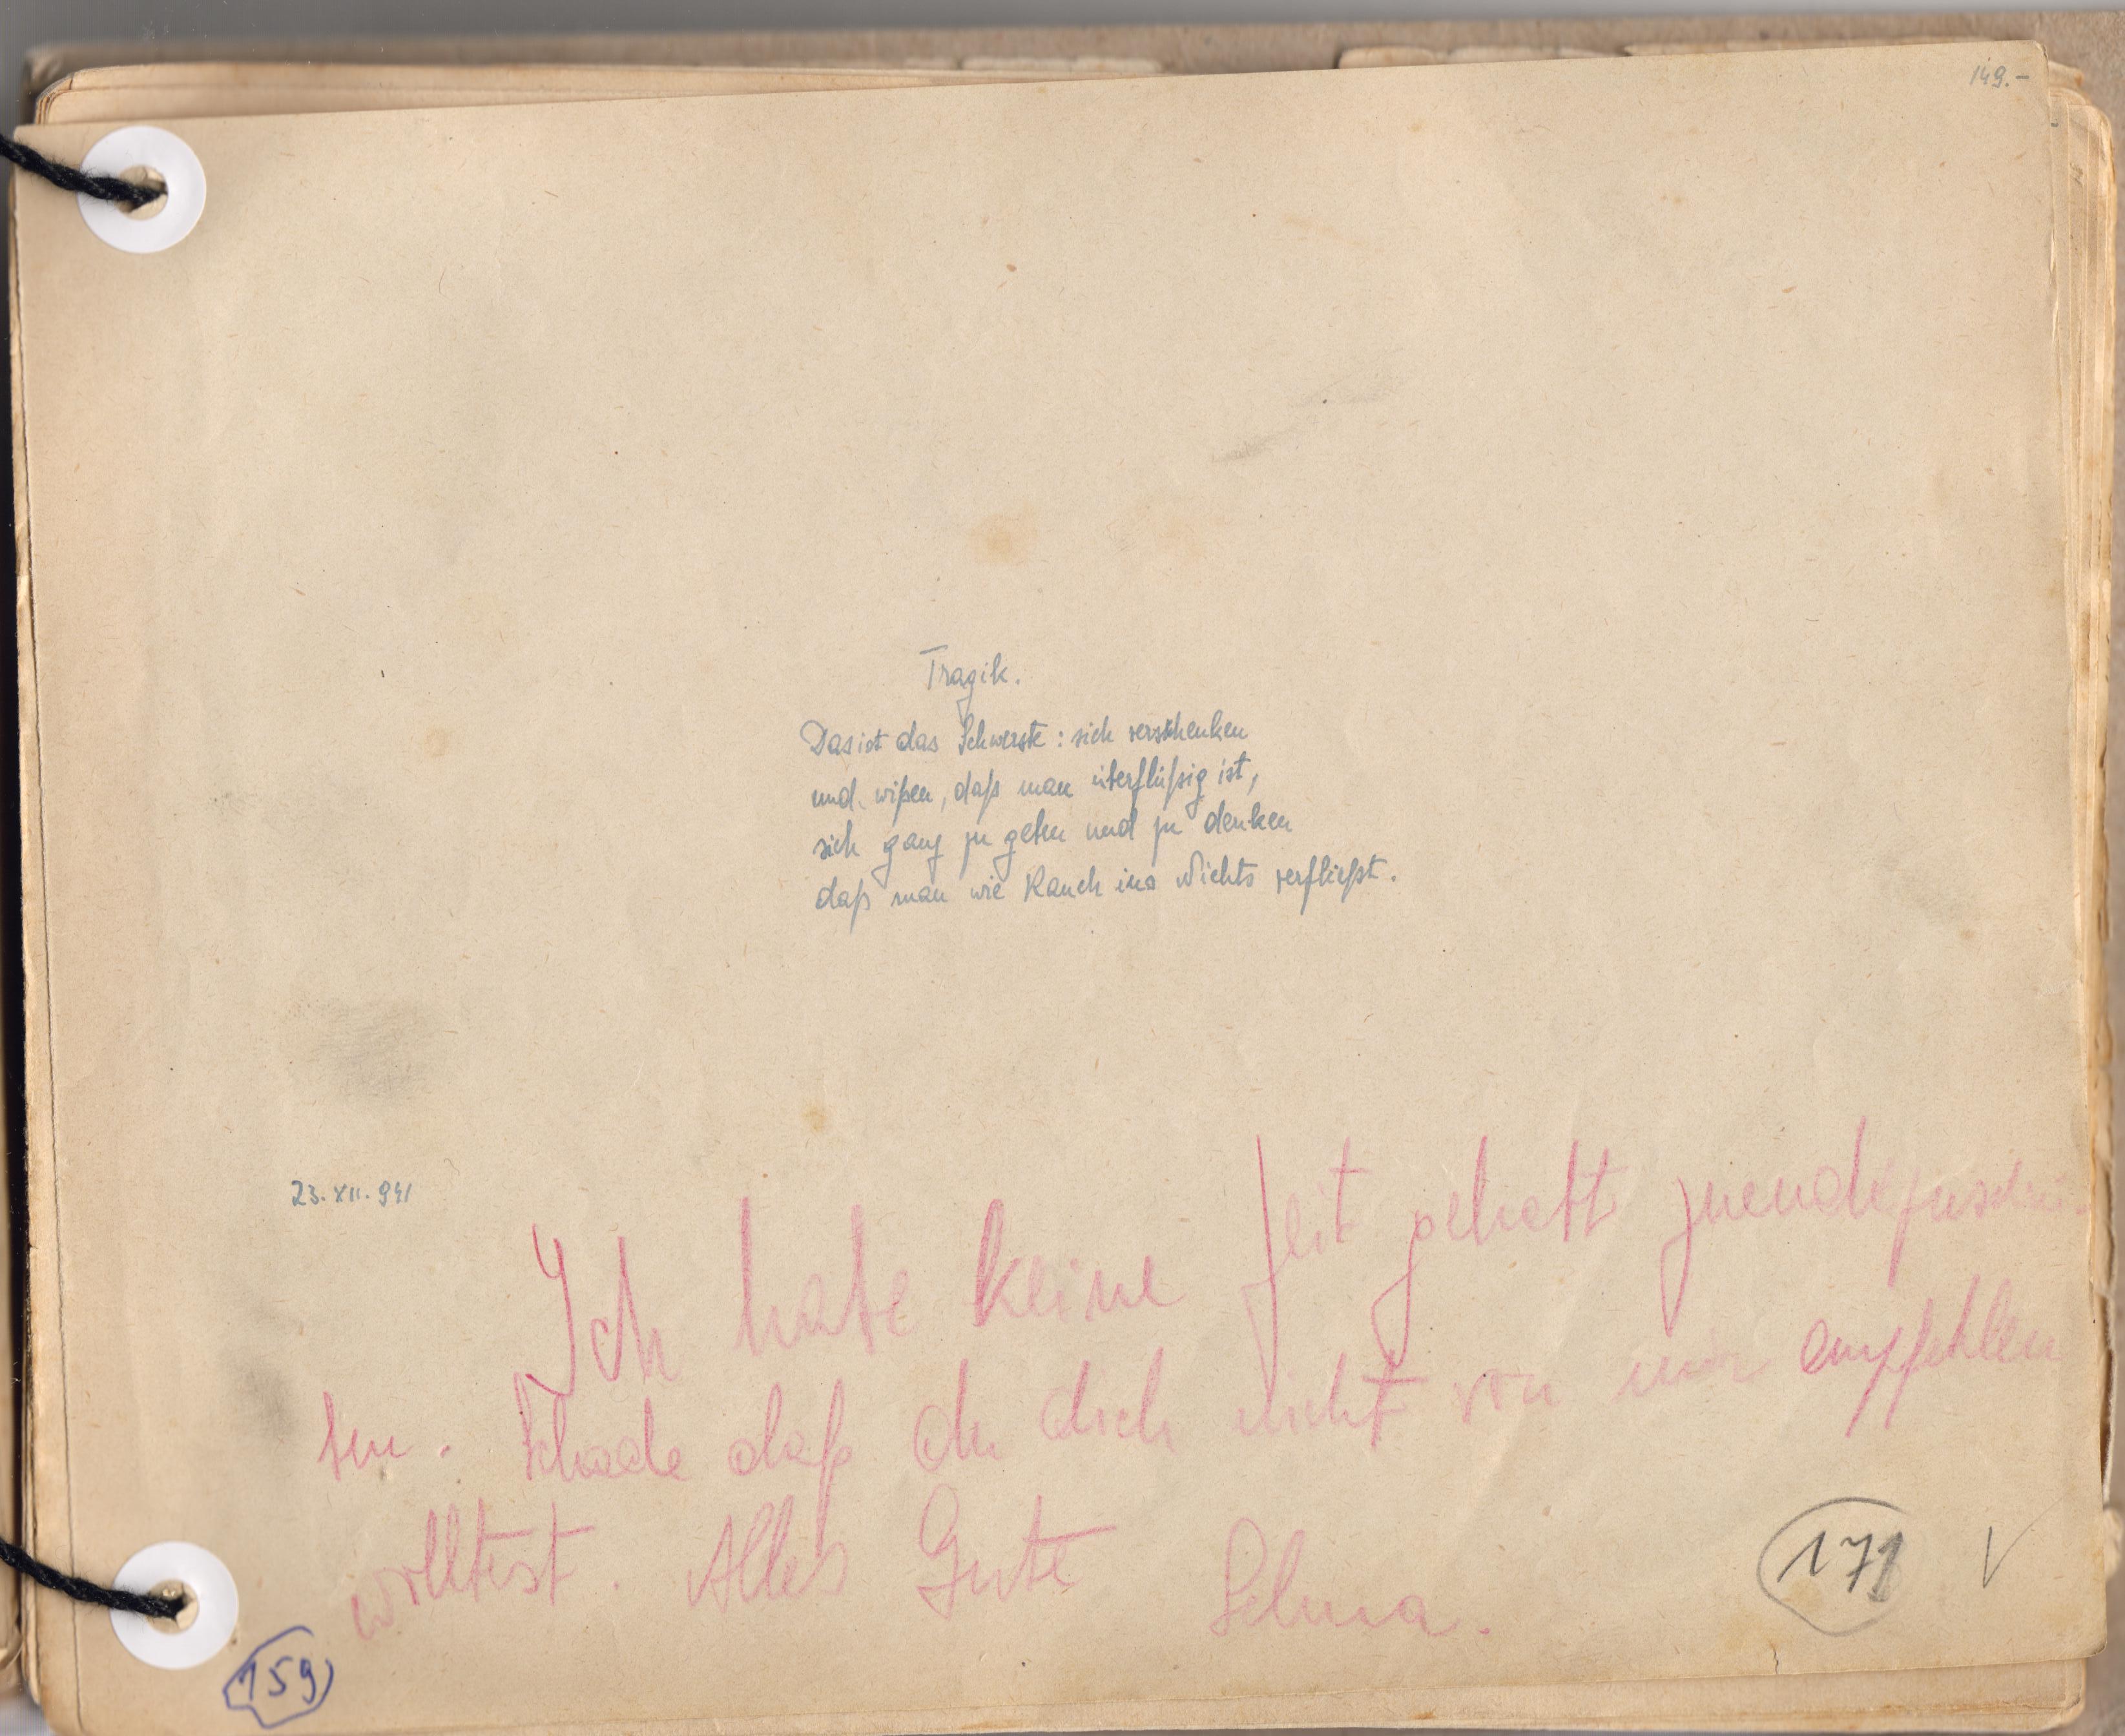 149.-
Tragik.
Das ist das Schwerste: sich verschenken
und wißen, daß man überflüßig ist,
sich ganz zu geben und zu denken
daß man wie Rauch ins Nichts verfließt.
23. XII. 941
Ich habe keine Zeit gehabt zuendezuschrei-
ben. Schade daß du dich nicht von mir empfehlen
wolltest. Alles Gute Selma.
171 V
159